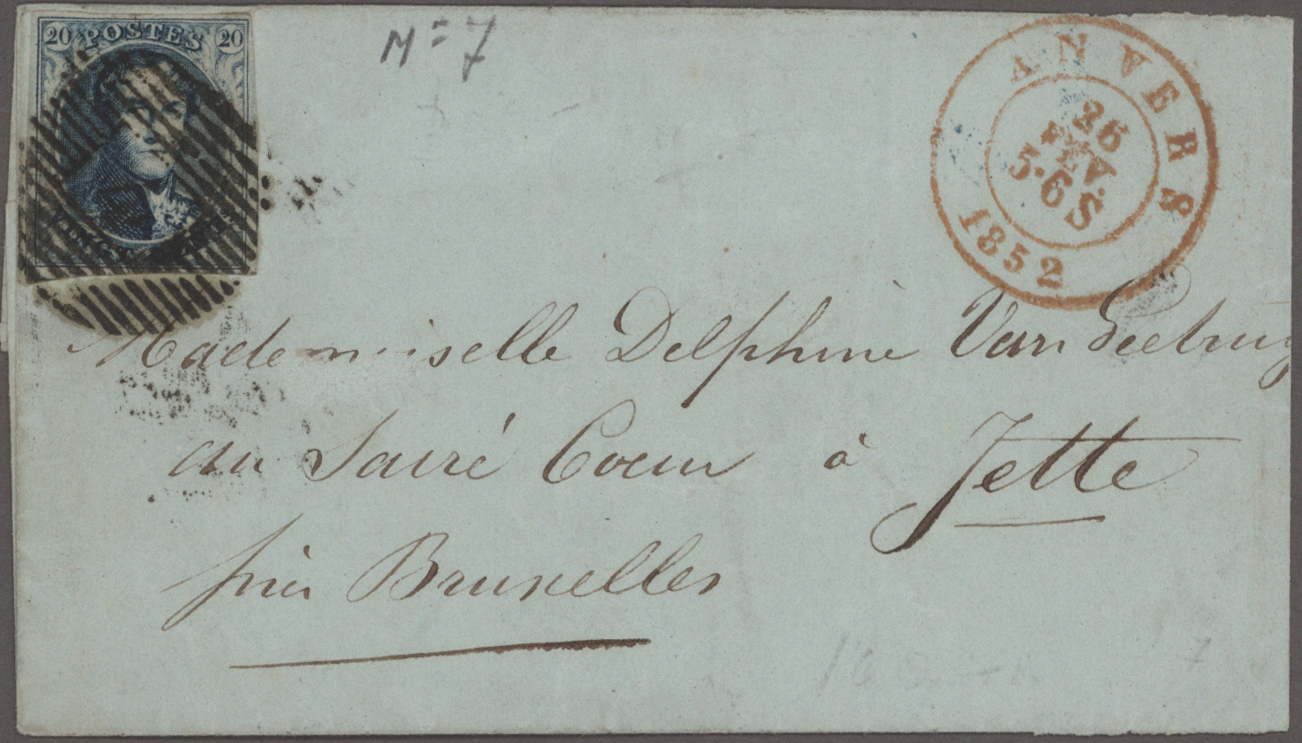 20 POSTES 20
VINGT
Nº 7
ANVERS
26
FEV.
5·6S
1852
Mademoiselle Delphine Van
au Sacré Coeur à Jette
près Bruxelles
7